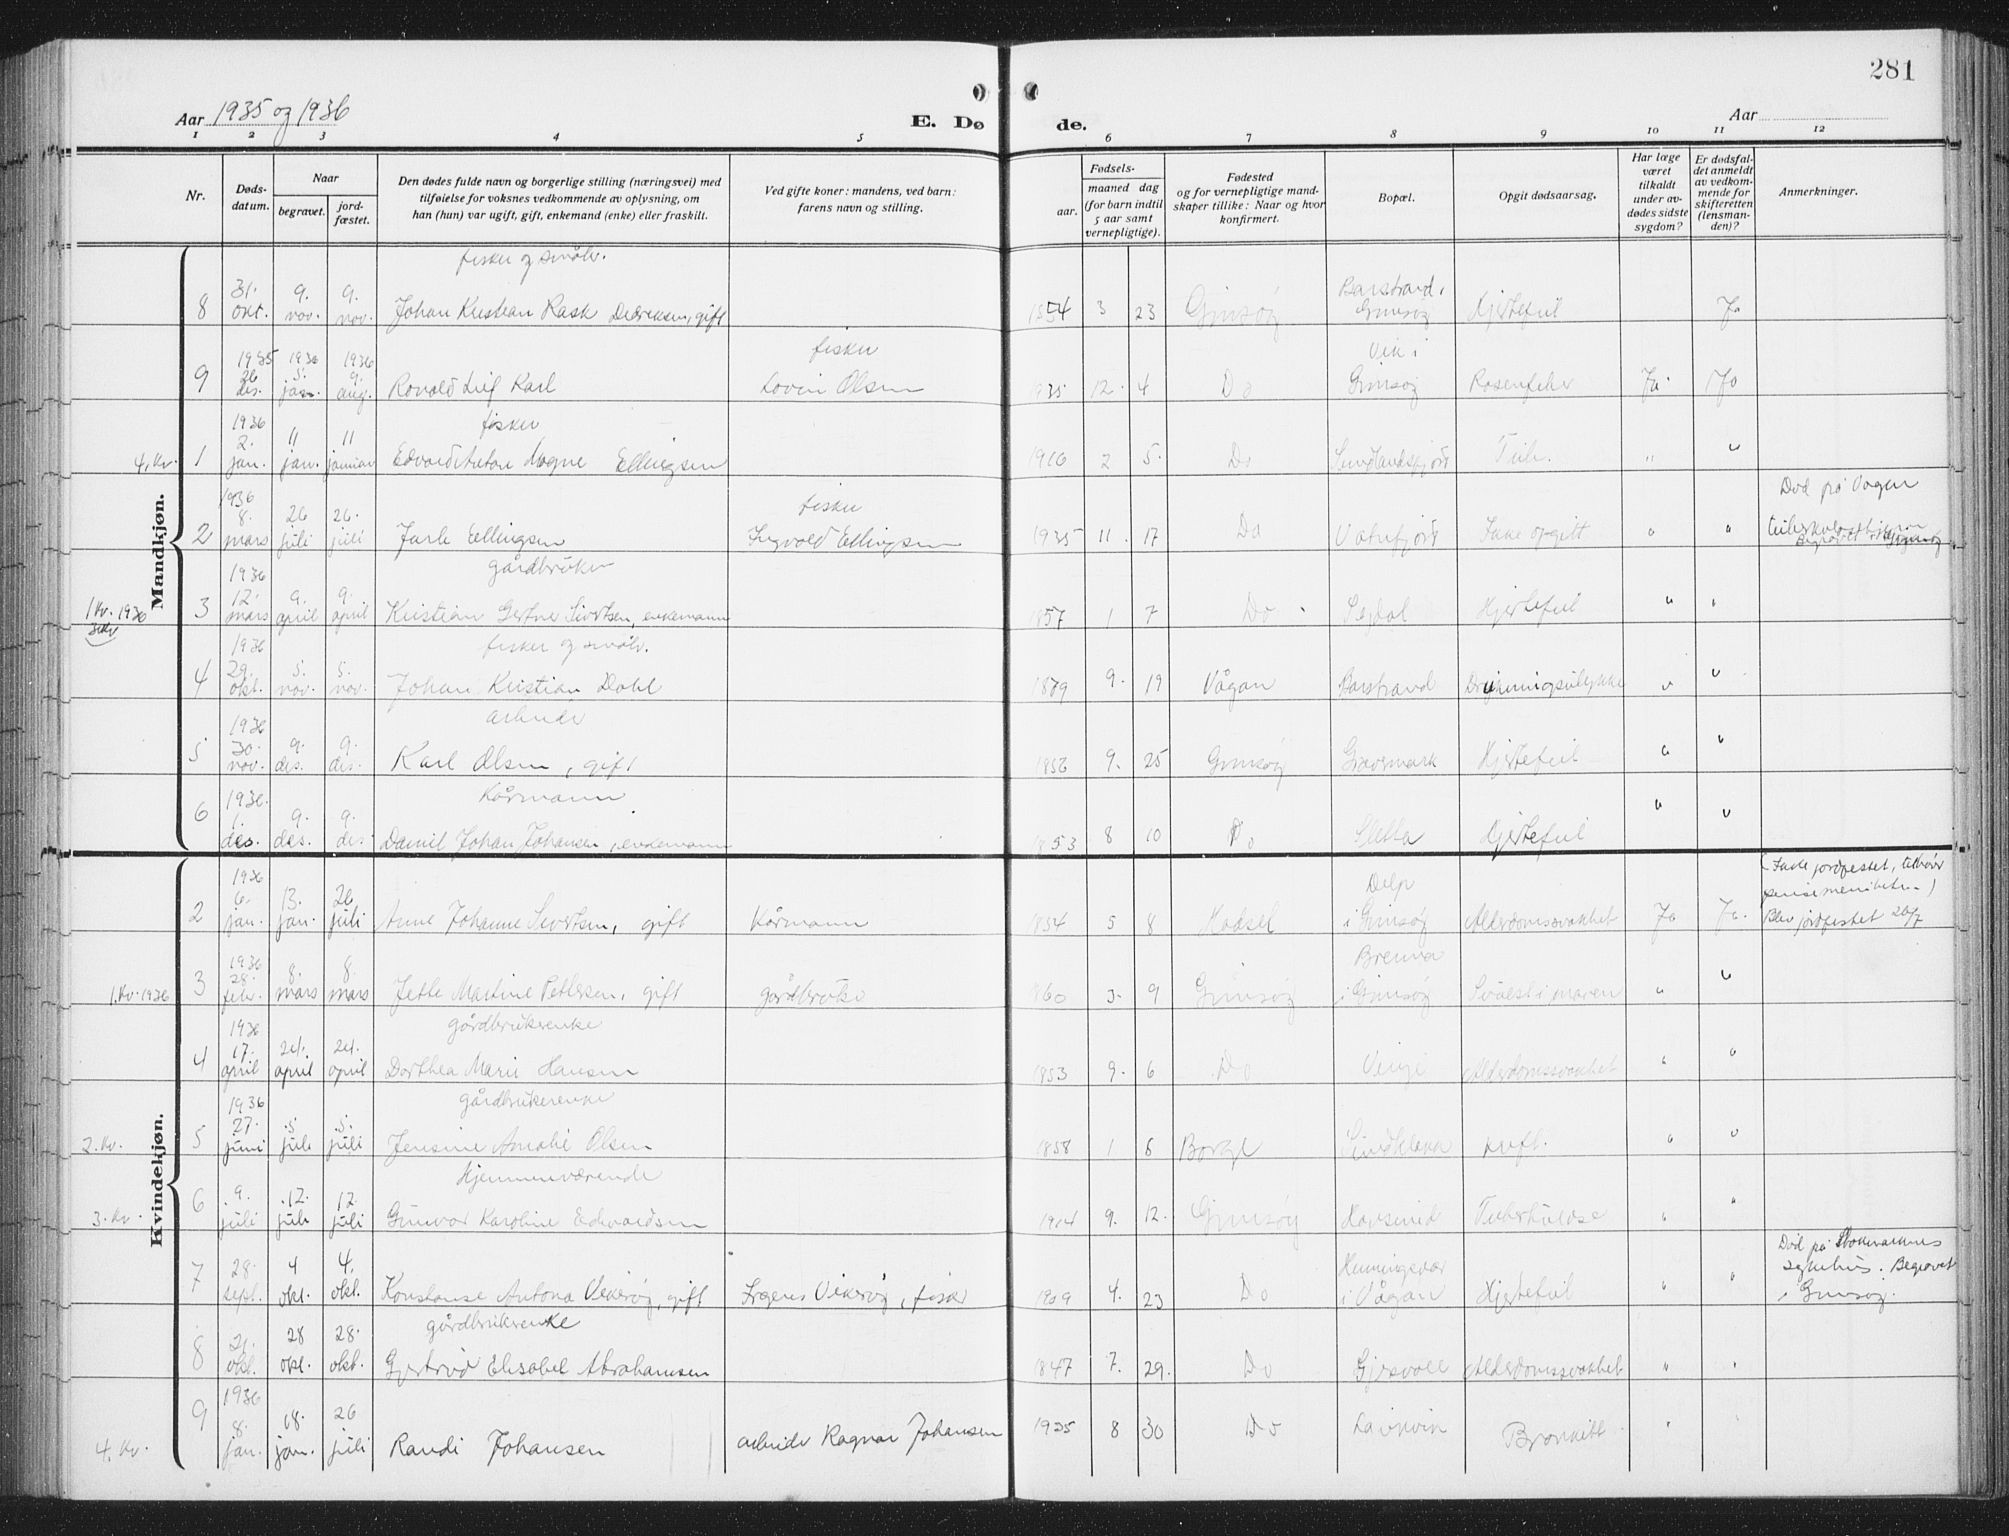 281
Aar 1935 og 1936
E. Dø de.
Aar
1 2 3 4 5 6 7 8 9 10 11 12
Nr.
Døds-
datum.
Naar
begravet.
jord-
fæstet.
Den dødes fulde navn og borgerlige stilling (næringsvei) med
tilføielse for voksnes vedkommende av oplysning, om
han (hun) var ugift, gift, enkemand (enke) eller fraskilt.
Ved gifte koner: mandens, ved barn:
farens navn og stilling.
Fødsels-
aar.
maaned dag
(for barn indtil
5 aar samt
vernepligtige).
Fødested
og for vernepligtige mand-
skaper tillike: Naar og hvor
konfirmert.
Bopæl.
Opgit dødsaarsag.
Har læge
været
tilkaldt
under av-
dødes sidste
sygdom?
Er dødsfal-
det anmeldt
av vedkom-
mende for
skifteretten
(lensman-
den)?
Anmerkninger.
Mandkjøn.
fisker og småbr.
8 31. okt. 9. nov. 9. nov. Johan Kristian Rask Didriksen, gift 1854 3 23 Gimsøy Barstrand, Gimsøy Hjertefeil Ja
9 1935 26 des. 1936 5. jan. 1936 9. aug. Ronald Leif Karl fisker Lovin Olsen 1935 12. 4 Do Vik i Gimsøy Rosenfeber Ja. Ja
fisker
4. Kv. 1 1936 2. jan. 11 jan. 11 januar Edvard Anton Magne Ellingsen 1916 2 5. Do Sundlandsfjord Tub. " "
2 1936 8. mars 26 juli 26. juli Jarle Ellingsen fisker Ingvald Ellingsen 1935 11. 17 Do Vatnfjord Ikke opgitt " " Død på Vågan
Begravet i Gimsøy
gårdbruker
1 Kv. 1936 3 1936 12. mars 9. april 9. april Kristian Gertner Sivertsen, enkemann 1857 1 7 Do Sydal Hjertefeil " "
fisker og småbr.
4 1936 29. okt. 5. nov. 5. nov. Johan Kristian Dahl 1879 9. 19 Vågan Barstrand Drukningsulykke " "
arbeider
5 1936 30. nov. 9. des. 9. des. Karl Olsen, gift 1856 9. 25 Gimsøy Gravermark Hjertefeil " "
Kårmann
6 1936. 1. des. 9. des. 9. des. Daniel Johan Johansen, enkemann 1853 8 10 Do Sletta Hjertefeil " "
Kvindekjøn.
2 1936 6. jan. 13. jan. 26 juli Anne Johanne Sivertsen, gift Kårmann 1854 5 8 Hadsel Delp i Gimsøy Alderdomssvakhet Ja Ja. (Ikke jordfestet, tilhører
Blev jordfestet 26/7
1. Kv. 1936 3 1936 28. febr. 8. mars 8. mars Jette Martine Pettersen, gift gårdbruker 1860 3. 9 Gimsøy Brenna i Gimsøy Svulst i maven " "
gårdbrukerenke
4 1936 17. april 24. april 24. april Dorthea Marie Hansen 1853 9. 6 Do Vinje Alderdomssvakhet " "
gårdbrukerenke
2. Kv. 5 1936 27. juni 5. juli 5. juli Jensine Amalie Olsen 1858 1 6 Borge Sundklakk " "
Hjemmeværende
3. Kv. 6 9. juli 12. juli 12 juli Gunvor Karoline Edvardsen 1914 9. 12. Gimsøy Hovsund Tuberkulose " "
7 28. sept. 4 okt. 4. okt. Konstanse Antona Vikerøy, gift Jrgens Vikerøy, fisker 1909 4. 23 Do Henningsvær i Vågan Hjertefeil " " Død på Stokmarknes
sykehus. Begravet
i Gimsøy.
gårdbrukerenke
8 21. okt. 28 okt. 28. okt. Gjertrud Elisabet Abrahamsen 1847 7. 29. Do Gjersvoll Alderdomssvakhet " "
4. Kv. 9 1936 8. jan. 18. jan. 26 juli Randi Johansen arbeider Ragnar Johansen 1935 8 30 Do Lavkvin Bronkitt " "